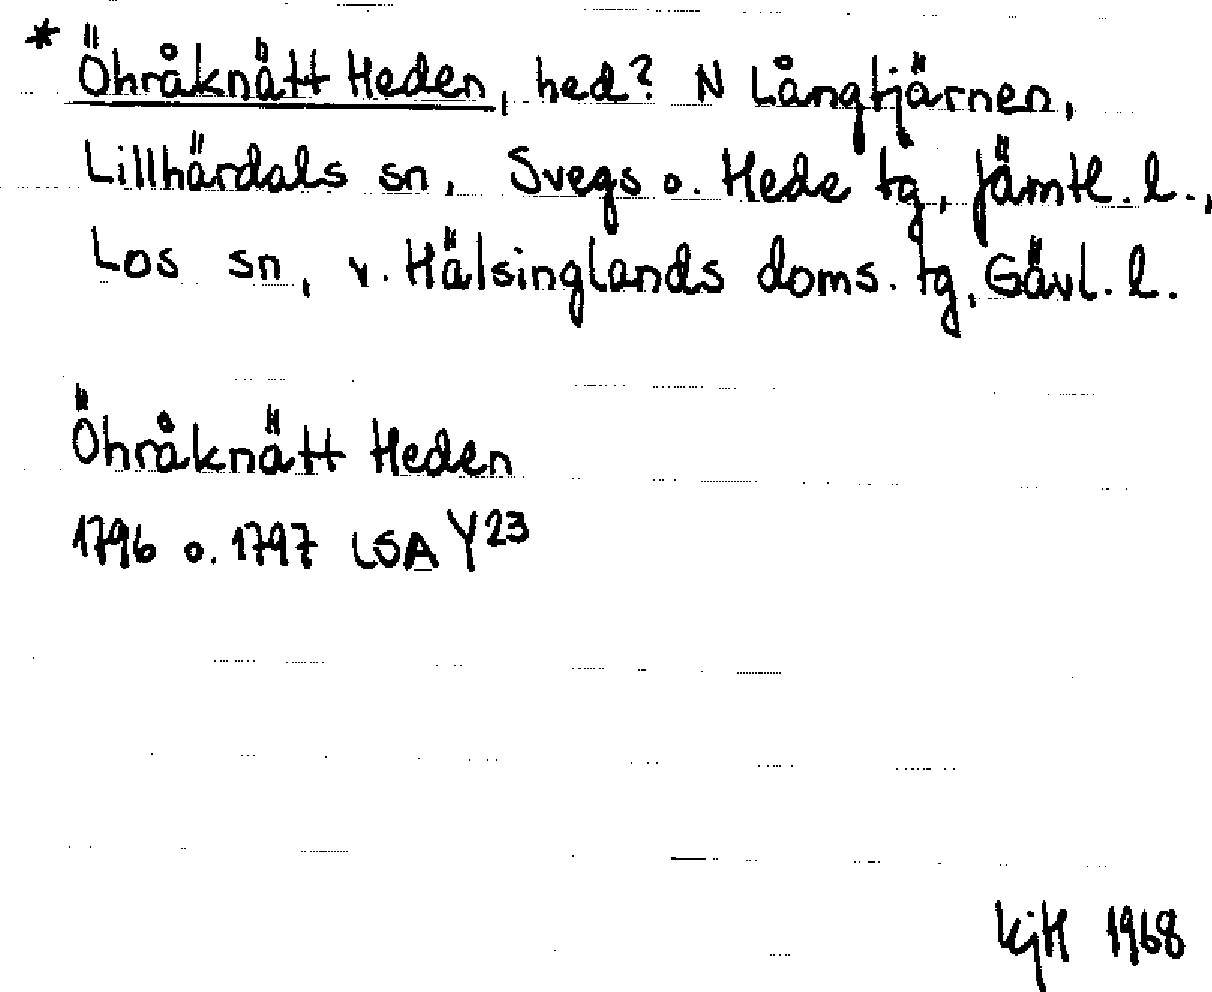 * Öhråknätt Heden, hed? N Långtjärnen,
Lillhärdals sn, Svegs o. Hede tg, Jämtl. l.,
Los sn, v. Hälsinglands doms. tg, Gävl. l.
Öhråknätt Heden
1796 o. 1797 LSA Y23
KjH 1968